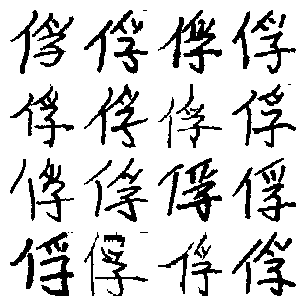 俘俘俘俘
俘俘俘俘
俘俘俘俘
俘俘俘俘